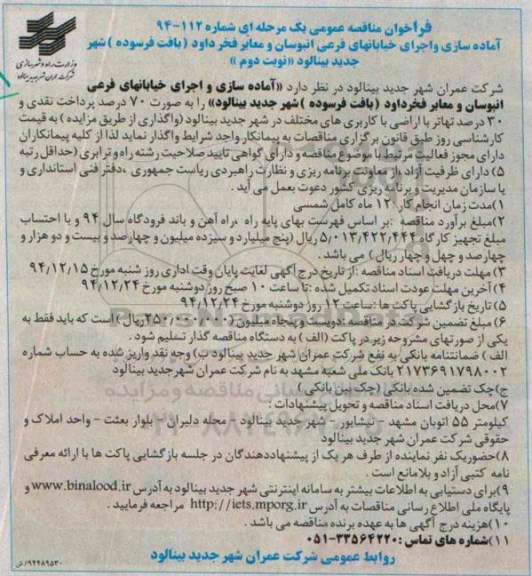 فراخوان مناقصه عمومی یک مرحله ای شماره ۱۱۲-۹۴
آماده سازی واجرای خیابانهای فرعی انبوسان و معابر فخر داود (بافت فرسوده) شهر
جدید بینالود «نوبت دوم»
وزارت راه و شهرسازی
شرکت عمران شهر جدید بینالود
شرکت عمران شهر جدید بینالود در نظر دارد «آماده سازی و اجرای خیابانهای فرعی
انبوسان و معابر فخرداود (بافت فرسوده) شهر جدید بینالود» را به صورت ۷۰ درصد پرداخت نقدی و
۳۰ درصد تهاتر با اراضی با کاربری های مختلف در شهر جدید بینالود (واگذاری از طریق مزایده) به قیمت
کارشناسی روز طبق قانون برگزاری مناقصات به پیمانکار واجد شرایط واگذار نماید لذا از کلیه پیمانکاران
دارای مجوز فعالیت مرتبط با موضوع مناقصه و دارای گواهی تایید صلاحیت رشته راه و ترابری (حداقل رتبه
۵) دارای ظرفیت آزاد ،از معاونت برنامه ریزی و نظارت راهبردی ریاست جمهوری ،دفتر فنی استانداری و
یا سازمان مدیریت و برنامه ریزی کشور دعوت بعمل می آید .
۱)مدت زمان انجام کار: ۱۲ ماه کامل شمسی
۲)مبلغ برآورد مناقصه :بر اساس فهرست بهای پایه راه ،راه آهن و باند فرودگاه سال ۹۴ و با احتساب
مبلغ تجهیز کارگاه ۵/۰۱۳/۴۲۲/۴۰۴ ریال (پنج میلیارد و سیزده میلیون و چهارصد و بیست و دو هزار و
چهارصد و چهار ریال) می باشد .
۳) مهلت دریافت اسناد مناقصه :از تاریخ درج آگهی لغایت پایان وقت اداری روز شنبه مورخ ۹۴/۱۲/۱۵
۴)آخرین مهلت عودت اسناد تکمیل شده :تا ساعت ۱۰ صبح روز دوشنبه مورخ ۹۴/۱۲/۲۴
۵) تاریخ بازگشایی پاکت ها :ساعت ۱۲ روز دوشنبه مورخ ۹۴/۱۲/۲۴
۶) مبلغ تضمین شرکت در مناقصه :دویست و پنجاه میلیون (۲۵۰/۰۰۰/۰۰۰ ریال) است که باید فقط به
یکی از صورتهای مشروحه زیر در پاکت (الف) به دستگاه مناقصه گذار تسلیم شود .
الف) ضمانتنامه بانکی به نفع شرکت عمران شهر جدید بینالود ب) وجه نقد واریز شده به حساب شماره
۲۱۷۳۶۹۱۷۹۸۰۰۲ بانک ملی شعبه مشهد به نام شرکت عمران شهر جدید بینالود
ج)چک تضمین شده بانکی (چک بین بانکی)
۷)محل دریافت اسناد مناقصه و تحویل پیشنهادات :
کیلومتر ۵۵ اتوبان مشهد - نیشابور - شهر جدید بینالود - محله دلیران - بلوار بعثت - واحد املاک و
حقوقی شرکت عمران شهر جدید بینالود
۸)حضور یک نفر نماینده از طرف هر یک از پیشنهاددهندگان در جلسه بازگشایی پاکت ها با ارائه معرفی
نامه کتبی آزاد و بلامانع است .
۹)برای دستیابی به اطلاعات بیشتر به سامانه اینترنتی شهر جدید بینالود به آدرس www.binalood.ir و
پایگاه ملی اطلاع رسانی مناقصات به آدرس http://iets.mporg.ir مراجعه فرمایید .
۱۰)هزینه درج آگهی ها به عهده برنده مناقصه می باشد .
۱۱)شماره های تماس : ۳۳۵۶۴۲۲۰-۰۵۱
روابط عمومی شرکت عمران شهر جدید بینالود
۹۴۲۸۹۵۳۰/ش